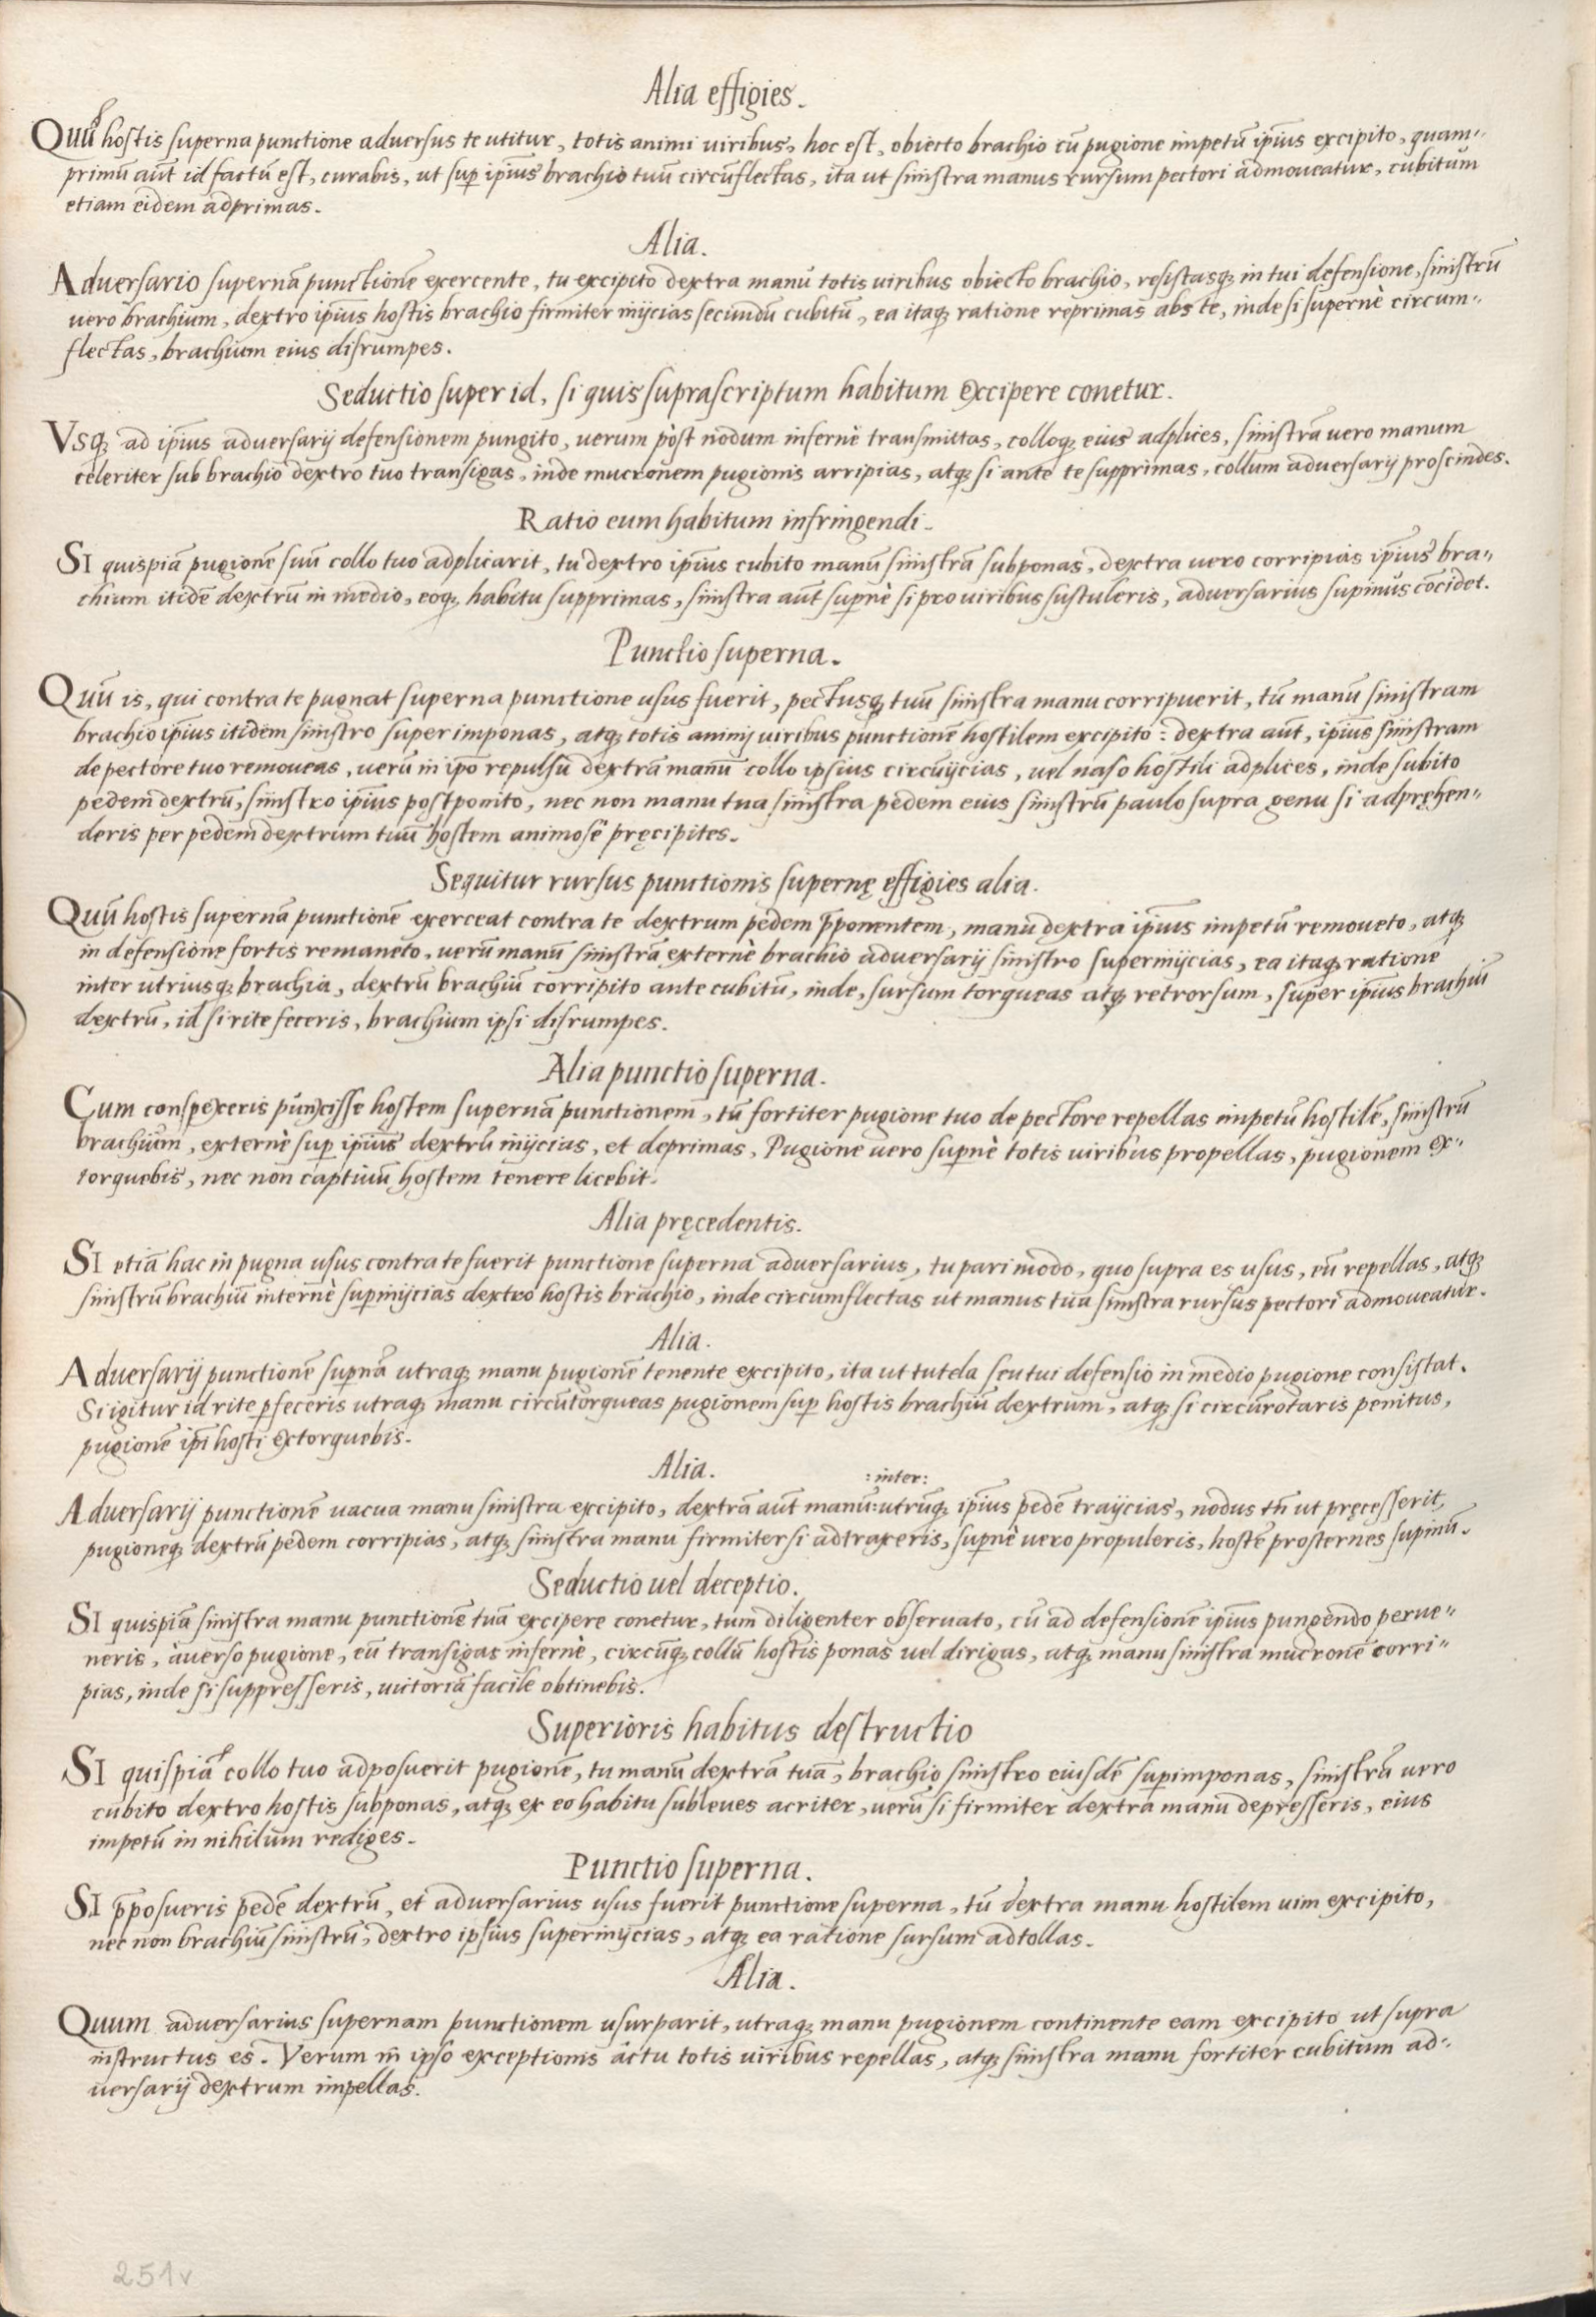 Alia effigies.
Quū hostis superna punctione aduersus te utitur, totis animi uiribus, hoc est, obiecto brachio cū pugione impetū ip̄ius excipito, quam=
primū aūt id factū est, curabis, ut sup̱ ip̄ius brachio tuū circūflectas, ita ut sinistra manus rursum pectori admoueatur, cubitum
etiam eidem adprimas.
Alia.
Aduersario supernā punctionē exercente, tu excipito dextra manu totis uiribus obiecto brachio, resistasq; in tui defensione, sinistrū
uero brachium, dextro ip̄ius hostis brachio firmiter iniicias secundū cubitū, ea itaq; ratione reprimas abs te, inde si supernè circum=
flectas, brachium eius disrumpes.
Seductio super id, si quis suprascriptum habitum excipere conetur.
Vsq; ad ip̄ius aduersarij defensionem pungito, uerum pòst nodum infernè transmittas, colloq; eius adplices, sinistrā uero manum
celeriter sub brachio dextro tuo transigas, inde mucronem pugionis arripias, atq; si ante te supprimas, collum aduersarij proscindes.
Ratio eum habitum infringendi.
SI quispiā pugionē suū collo tuo adplicarit, tu dextro ip̄ius cubito manū sinistrā subponas, dextra uero corripias ip̄ius bra=
chium itidē dextrū in medio, eoq; habitu supprimas, sinistra aūt sup̱nè si pro uiribus sustuleris, aduersarius supinus cōcidet.
Punctio superna.
Quū is, qui contra te pugnat superna punctione usus fuerit, pectusq; tuū sinistra manu corripuerit, tū manū sinistram
brachio ip̄ius itidem sinistro super imponas, atq; totis animi uiribus punctionē hostilem excipito: dextra aūt, ip̄ius sinistram
de pectore tuo remoueas, uerū in ip̄o repulsu dextrā manū collo ipsius circūijcias, uel naso hostili adplices, inde subito
pedem dextrū, sinistro ip̄ius postponito, nec non manu tua sinistra pedem eius sinistrū paulo supra genu si adpręhen=
deris per pedem dextrum tuū hostem animosè pręcipites.
Sequitur rursus punctionis supernę effigies alia.
Quū hostis supernā punctionē exerceat contra te dextrum pedem p̄ponentem, manu dextra ip̄ius impetū remoueto, atq;
in defensione fortis remaneto, uerū manū sinistrā externè brachio aduersarij sinistro superinijcias, ea itaq; ratione
inter utriusq; brachia, dextrū brachiū corripito ante cubitū, inde, sursum torqueas atq; retrorsum, super ip̄ius brachiū
dextrū, id si rite feceris, brachium ipsi disrumpes.
Alia punctio superna.
Cum conspexeris punxisse hostem supernā punctionem, tū fortiter pugione tuo de pectore repellas impetū hostilē, sinistrū
brachium, externè sup̱ ip̄ius dextrū inijcias, et deprimas, Pugione uero sup̱nè totis uiribus propellas, pugionem ex=
torquebis, nec non captiuū hostem tenere licebit.
Alia pręcedentis.
SI etiā hac in pugna usus contra te fuerit punctione superna aduersarius, tu pari modo, quo supra es usus, eū repellas, atq;
sinistrū brachiū internè sup̱inijcias dextro hostis brachio, inde circumflectas ut manus tua sinistra rursus pectori admoueatur.
Alia.
Aduersarij punctionē sup̱nā utraq; manu pugionē tenente excipito, ita ut tutela seu tui defensio in medio pugione consistat.
Si igitur id rite p̱feceris utraq; manu circūtorqueas pugionem sup̱ hostis brachiū dextrum, atq; si circūrotaris penitus,
pugionē ip̄i hosti extorquebis.
Alia.
:inter:
Aduersarij punctionē uacua manu sinistra excipito, dextrā aūt manū: utrūq; ip̄ius pedē traijcias, nodus tn̄ ut pręcesserit,
pugioneq; dextrū pedem corripias, atq; sinistra manu firmiter si adtraxeris, sup̱nè uero propuleris, hostē prosternes supinū.
Seductio uel deceptio.
SI quispiā sinistra manu punctionē tuā excipere conetur, tum diligenter obseruato, cū ad defensionē ip̄ius pungendo perue=
neris, auerso pugione, eū transigas infernè, circūq; collū hostis ponas uel dirigas, atq; manu sinistra mucronē corri=
pias, inde si suppresseris, uictoriā facile obtinebis.
Superioris habitus destructio
SI quispiā collo tuo adposuerit pugionē, tu manū dextrā tuā, brachio sinistro eiusdē sup̱imponas, sinistrā uero
cubito dextro hostis subponas, atq; ex eo habitu subleues acriter, uerū si firmiter dextra manu depresseris, eius
impetū in nihilum rediges.
Punctio superna.
SI p̄posueris pedē dextrū, et aduersarius usus fuerit punctione superna, tū dextra manu hostilem uim excipito,
nec non brachiū sinistrū, dextro ipsius superinijcias, atq; ea ratione sursum adtollas.
Alia.
Quum aduersarius supernam punctionem usurparit, utraq; manu pugionem continente eam excipito ut supra
instructus es. Verum in ipso exceptionis actu totis uiribus repellas, atq; sinistra manu fortiter cubitum ad=
uersarij dextrum impellas.
251v